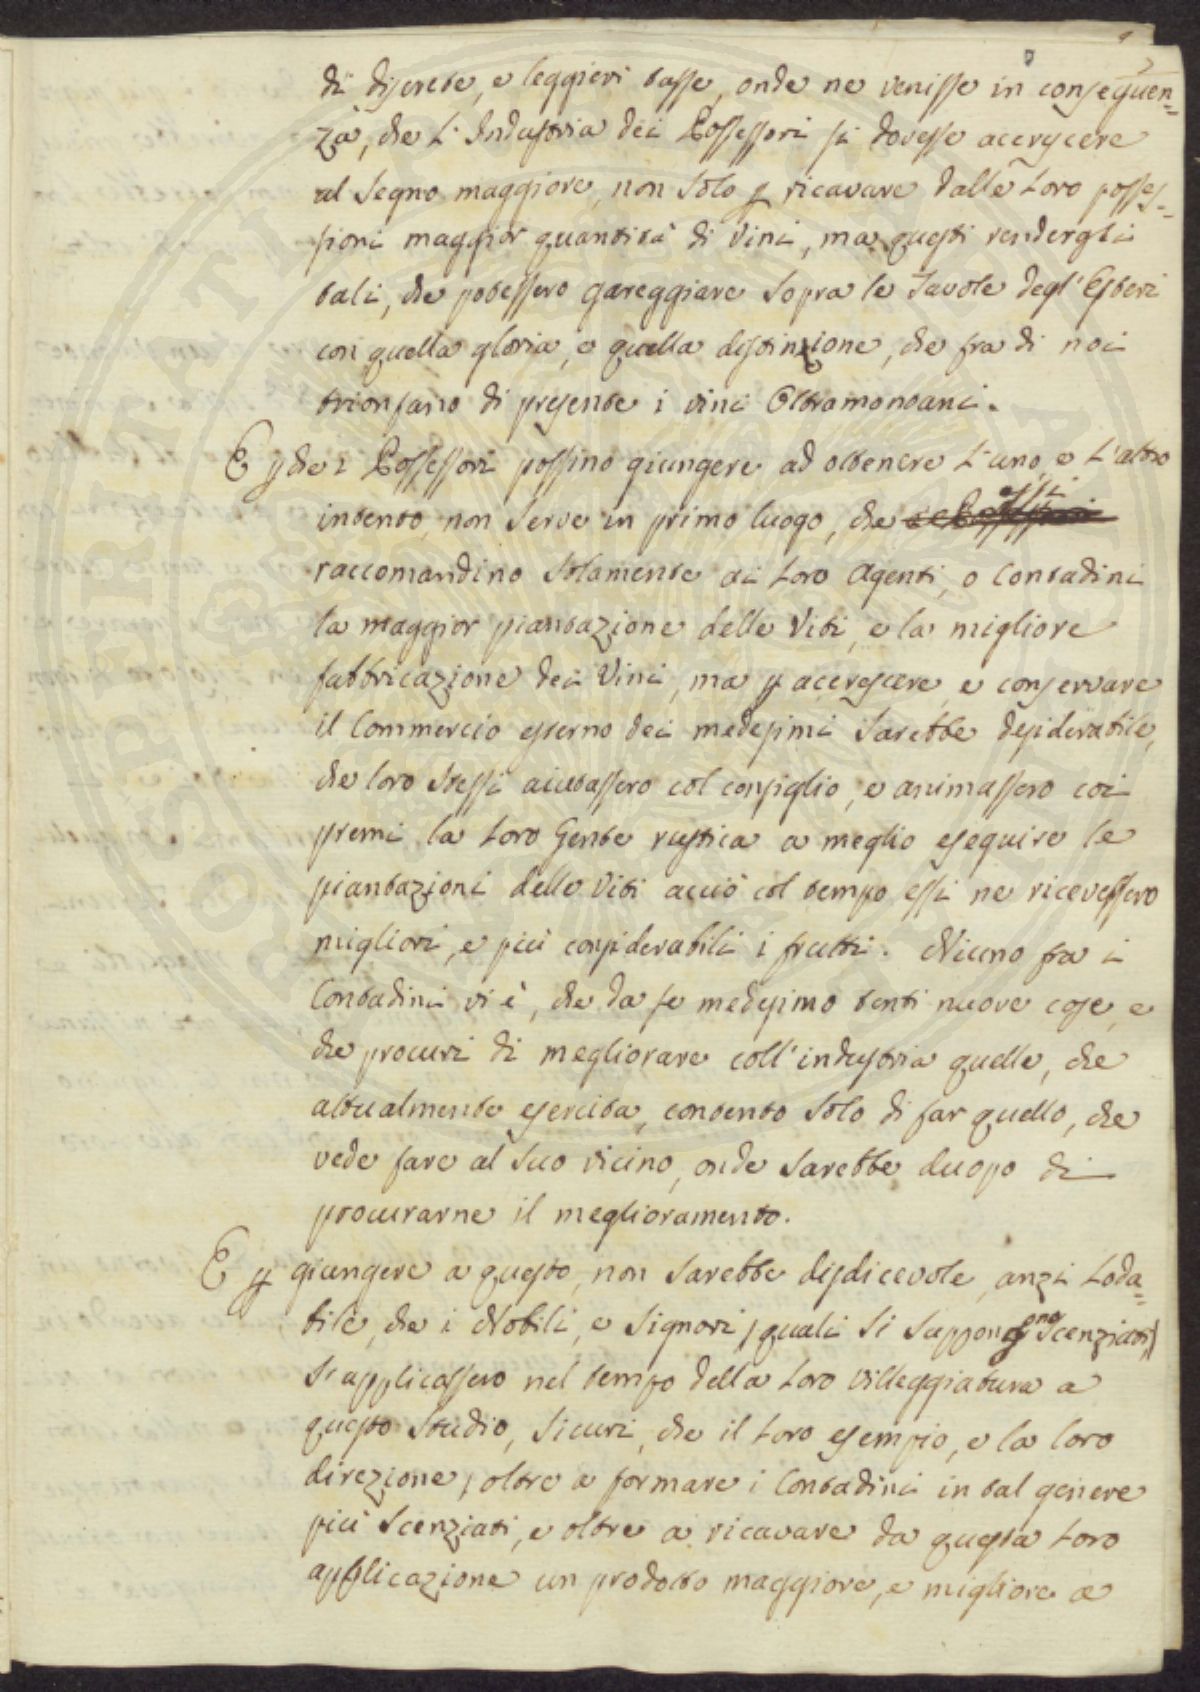 di discrete, e leggieri tasse, onde ne venisse in conseguen=
za, che l'Industria dei Possessori si dovesse accrescere
al Segno maggiore, non solo p ricavare dalle Loro posses=
sioni maggior quantità di Vini, ma questi rendergli
tali, che potessero gareggiare sopra le Tavole degl'Esteri
con quella gloria, e quella distinzione, che fra di noi
trionfano di presente i vini Oltramontani.
E p che i Possessori possino giungere ad ottenere l'uno, e l'altro
essi
intento, non serve in primo luogo, che i Possessori
raccomandino Solamente ai Loro Agenti, o Contadini
la maggior piantazione delle Viti, e la migliore
fabbricazione dei Vini, ma p accrescere, e conservare
il Commercio esterno dei medesimi Sarebbe desiderabile,
che loro stessi aiutassero col consiglio, e animassero coi
premi la Loro Gente rustica a meglio eseguire le
piantazioni delle Viti acciò col tempo essi ne ricevessero
migliori, e più considerabili i frutti. Niuno fra i
Contadini vi è, che da se medesimo tenti nuove cose, e
che procuri di megliorare coll'industria quelle, che
attualmente esercita, contento Solo di far quello, che
vede fare al Suo vicino, onde Sarebbe duopo di
procurarne il meglioramento.
E p giungere a questo, non Sarebbe disdicevole, anzi Loda=
bile, che i Nobili, e Signori (quali si Suppongono Scenziati)
s'applicassero nel tempo della Loro villeggiatura a
questo Studio, Sicuri, che il Loro esempio, e la loro
direzione, oltre a formare i Contadini in tal genere
più Scenziati, e oltre a ricavare da questa Loro
applicazione un prodotto maggiore, e migliore a